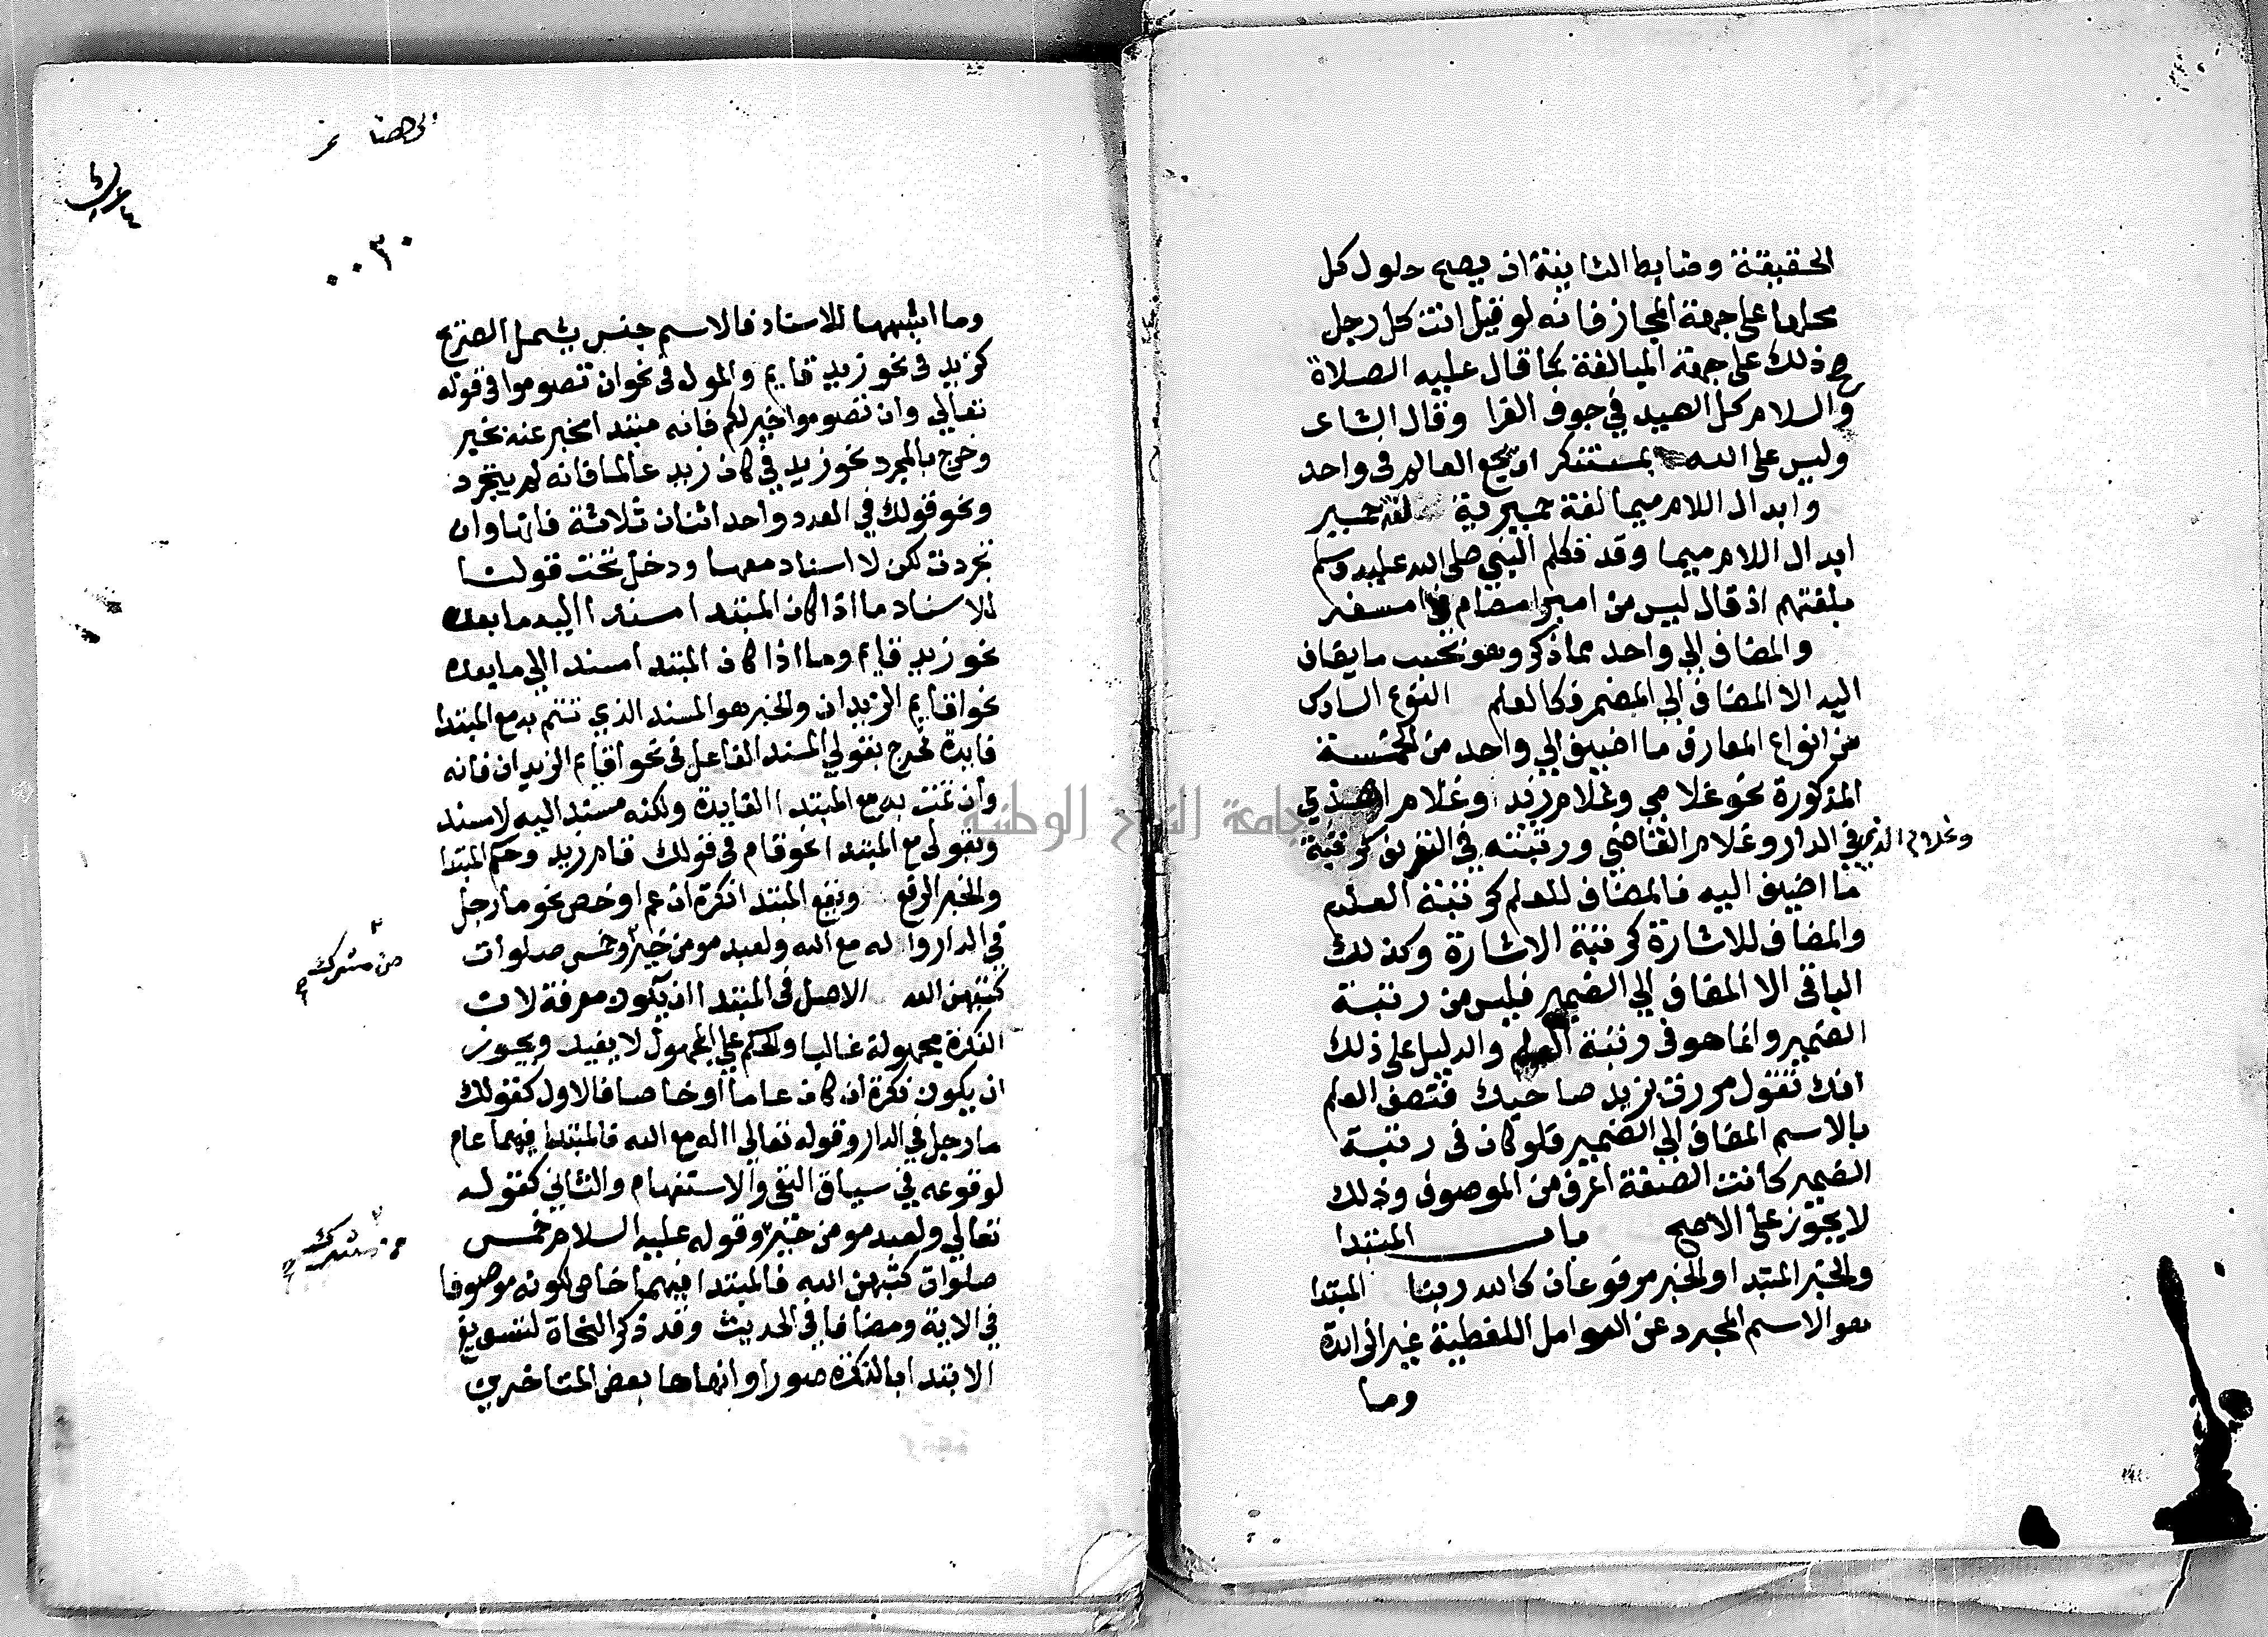 الحقيقة وضابط الثانية ان يصح حلول كل
محلها على جهة المجاز فانه لو قيل انت كل رجل
صح ذلك على جهة المبالغة كما قال عليه الصلاة
والسلام كل الصيد في جوف الفرا وقال الشاعر
وليس على الله بمستنكر ان يجمع العالم في واحد
وابدال اللام ميما لغة حميرية لغة حمير
ابدال اللام ميما وقد تكلم النبي صلى الله عليه وسلم
بلغتهم اذ قال ليس من امبر امصيام في امسفر
والمضاف الي واحد مما ذكر وهو بحسب ما يضاف
اليه الا المضاف الي المضمر فكالعلم النوع السادس
من انواع المعارف ما اضيف الي واحد من الخمسة
المذكورة نحو غلامي وغلام زيد وغلام هذا
وغلام الذي في الدار وغلام القاضي ورتبته في التعريف كرتبة
ما اضيف اليه فالمضاف للعلم كرتبة العلم
والمضاف للاشارة كرتبة الاشارة وكذلك
الباقي الا المضاف الي الضمير فليس من رتبة
الضمير وانما هو في رتبة العلم والدليل على ذلك
انك تقول مررت بزيد صاحبك فتصف العلم
بالاسم المضاف الي الضمير فلو كان في رتبة
الضمير كانت الصفة اعرف من الموصوف وذلك
لا يجوز على الاصح باب المبتدا
والخبر المبتدا والخبر مرفوعان كالله ربنا المبتدا
هو الاسم المجرد عن العوامل اللفظية غير الزائدة
وما
وما اشبهها للاسناد فالاسم جنس يشمل الصريح
كزيد في نحو زيد قايم والمول في نحو ان تصوموا في قوله
تعالي وان تصوموا خير لكم فانه مبتدا مخبر عنه بخير
وخرج بالمجرد نحو زيد في كان زيد عالما فانه لم يتجرد
ونحو قولك في العدد واحد اثنان ثلاثة فانها وان
تجردت لكن لا اسناد معها ودخل تحت قولنا
للاسناد ما اذا كان المبتدا مسندا اليه ما بعده
نحو زيد قايم وما اذا كان المبتدا مسندا الي ما بعده
نحو اقايم الزيدان والخبر هو المسند الذي تتم به مع المبتدا
فايدة فخرج بقولي المسند الفاعل في نحو اقايم الزيدان فانه
وان تمت به مع المبتدا الفايدة ولكنه مسند اليه لا مسند
وبقولي مع المبتدا نحو قام في قولك قام زيد وحكم المبتدا
والخبر الرفع ويقع المبتدا نكرة ان عم او خص نحو ما رجل
في الدار واله مع الله ولعبد مومن خير وخمس صلوات
من مشرك
كتبهن الله الاصل في المبتدا ان يكون معرفة لان
النكرة مجهولة غالبا والحكم علي المجهول لا يفيد ويجوز
ان يكون نكرة ان كان عاما او خاصا فالاول كقولك
ما رجل في الدار وقوله تعالي االه مع الله فالمبتدا فيهما عام
لوقوعه في سياق النفي والاستفهام والثاني كقوله
تعالي ولعبد مومن خير وقوله عليه السلام خمس
من مشرك
صلوات كتبهن الله فالمبتدا فيهما خاص لكونه موصوفا
في الاية ومضافا في الحديث وقد ذكر النحاة لتسويغ
الابتدا بالنكرة صورا وانهاها بعض المتاخرين
جامعة النجاح الوطنية